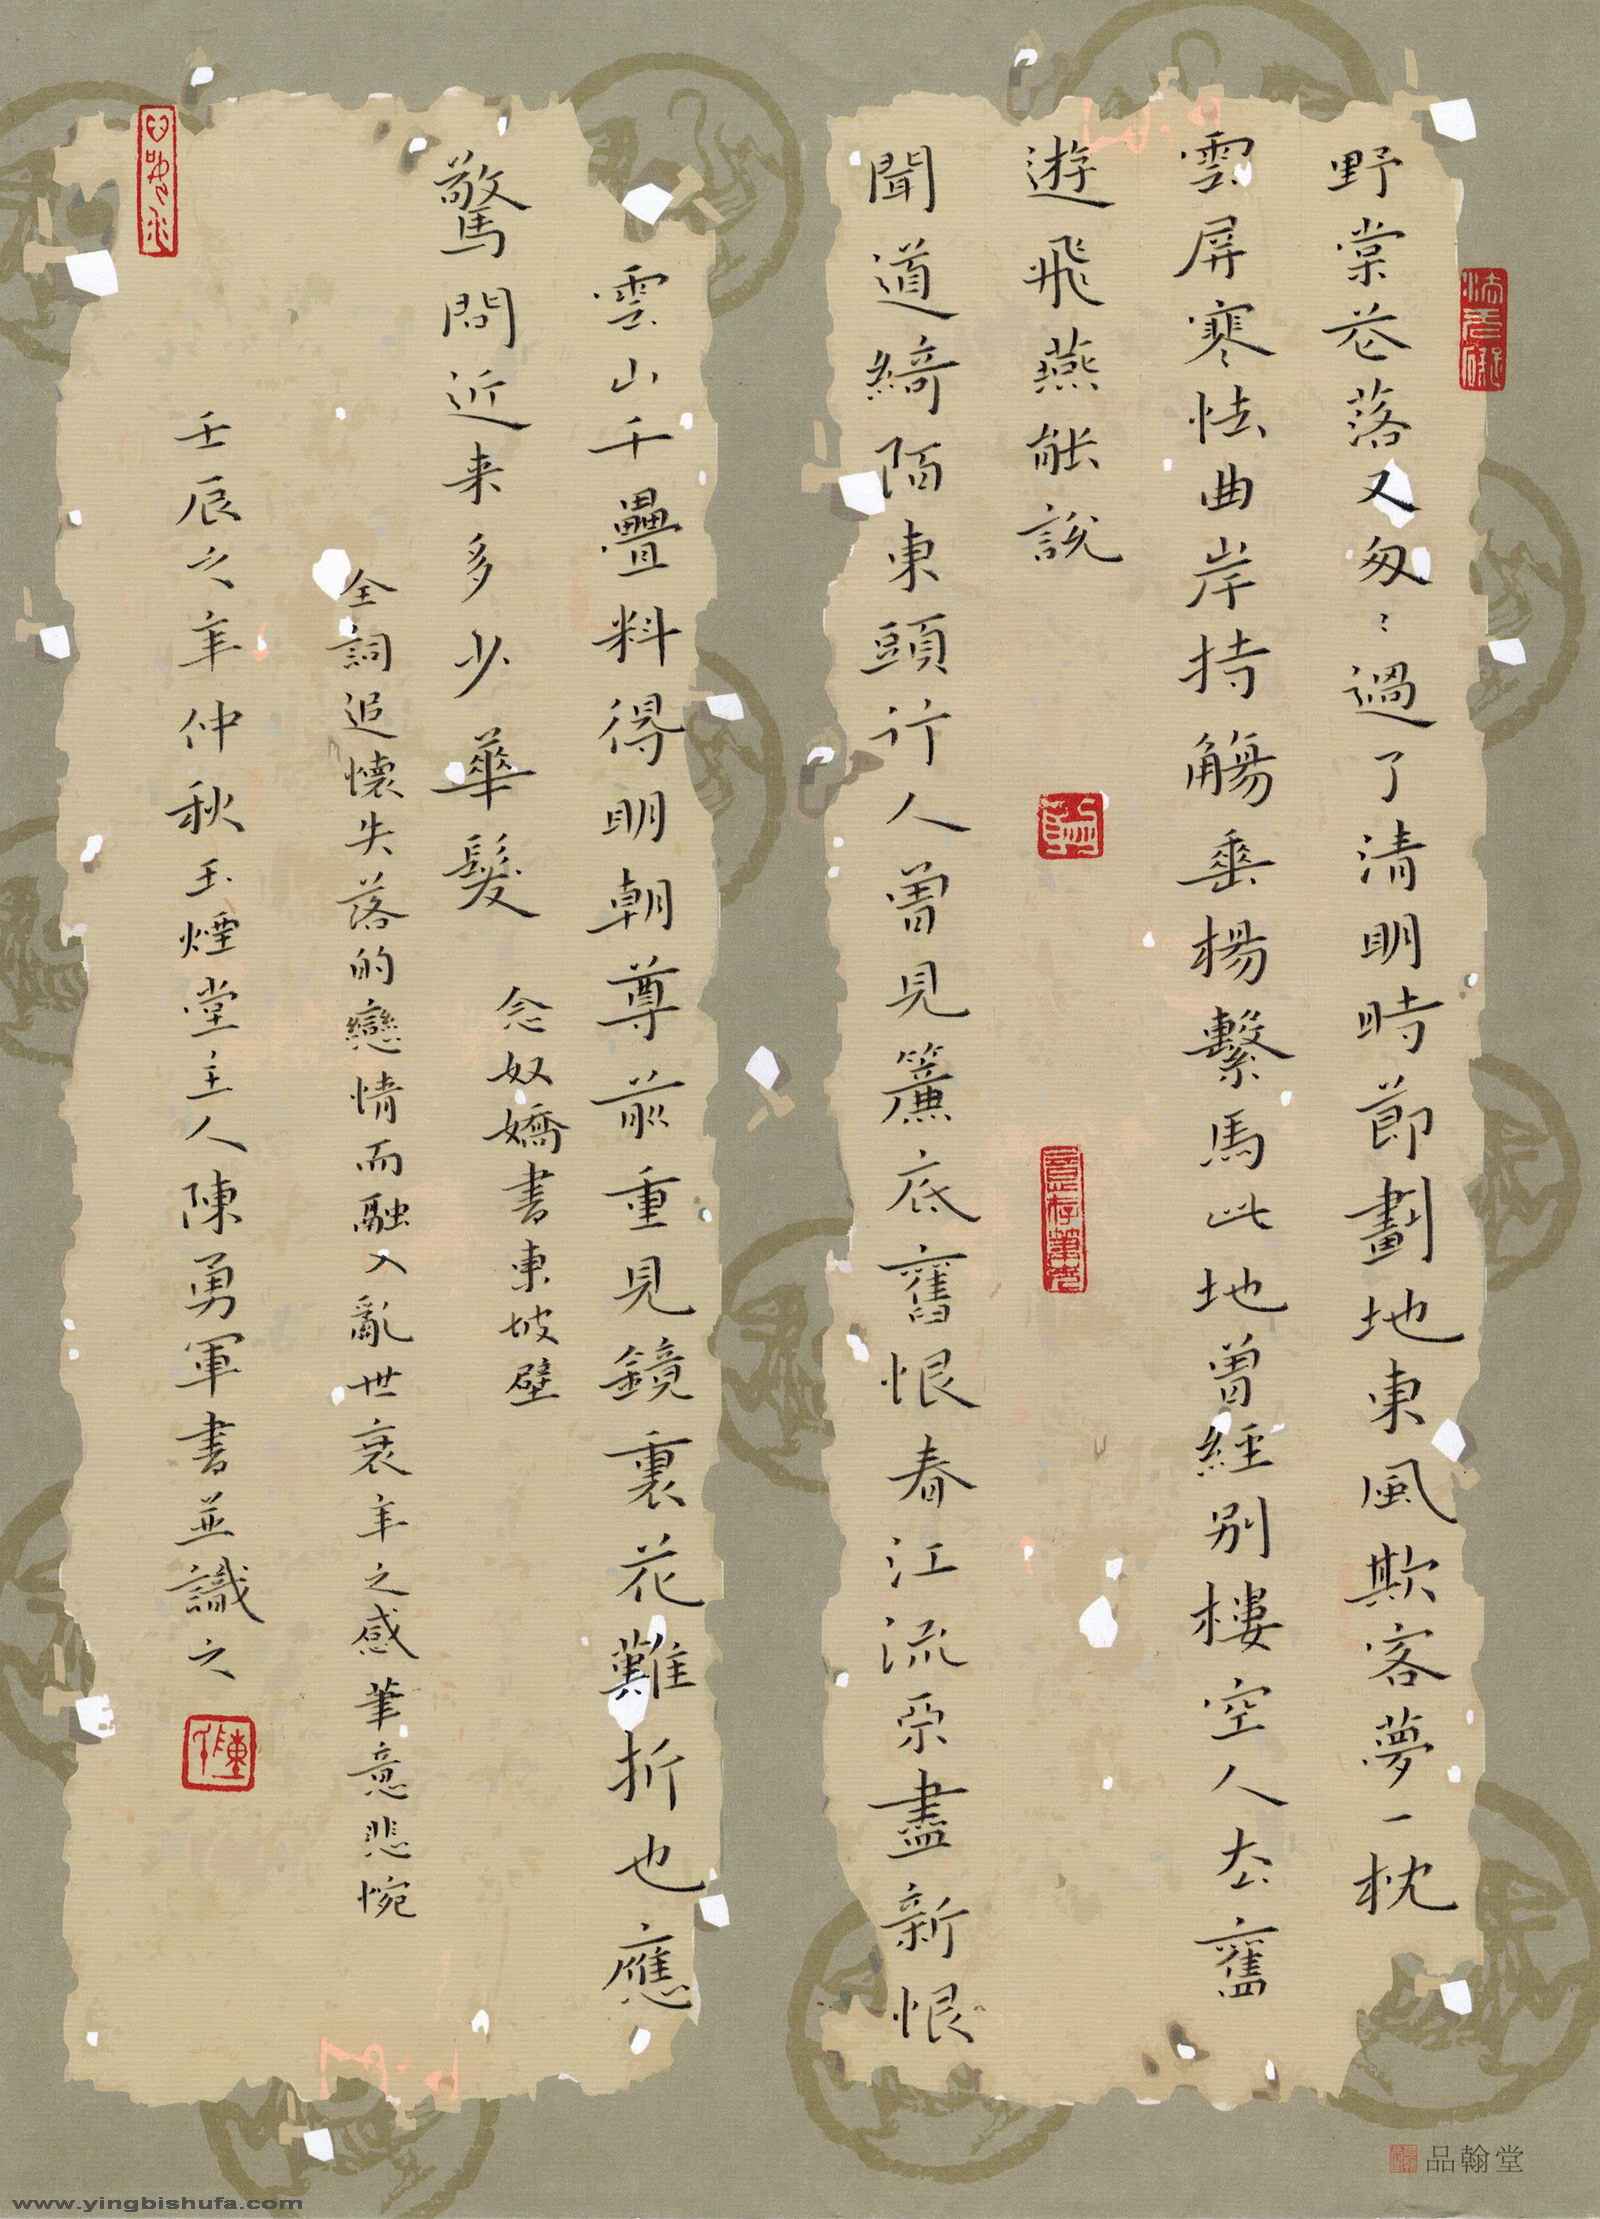 野棠花落又匆〻過了清明時節劃地東風欺客夢一枕
雲屏寒怯曲岸持觴垂楊繫馬此地曾經別樓空人去舊
遊飛燕能說
聞道綺陌東頭行人曾見簾底舊恨春江流不盡新恨
雲山千疊料得明朝尊前重見鏡裏花難折也應
驚問近来多少華髮 念奴嬌書東坡壁
全詞追懷失落的戀情而融入亂世衰年之感筆意悲惋
壬辰之年仲秋玉煙堂主人陳勇軍書並識之
品翰堂
www.yingbishufa.com